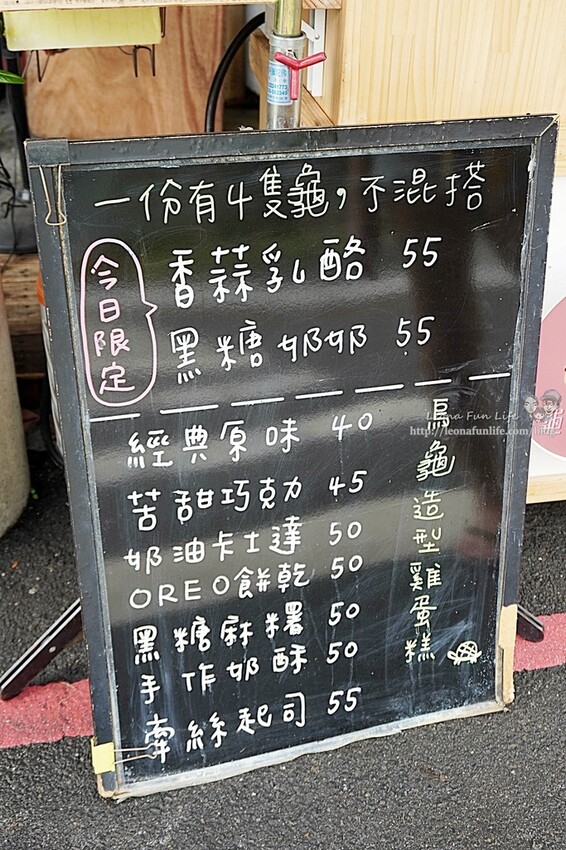 一份有4隻龜，不混搭
今日限定
香蒜乳酪 55
黑糖奶奶 55
經典原味 40
苦甜巧克力 45
奶油卡士達 50
OREO餅乾 50
黑糖麻糬 50
手作奶酥 50
牽絲起司 55
烏龜造型雞蛋糕
Leona Fun Life
http://leonafunlife.com/blog